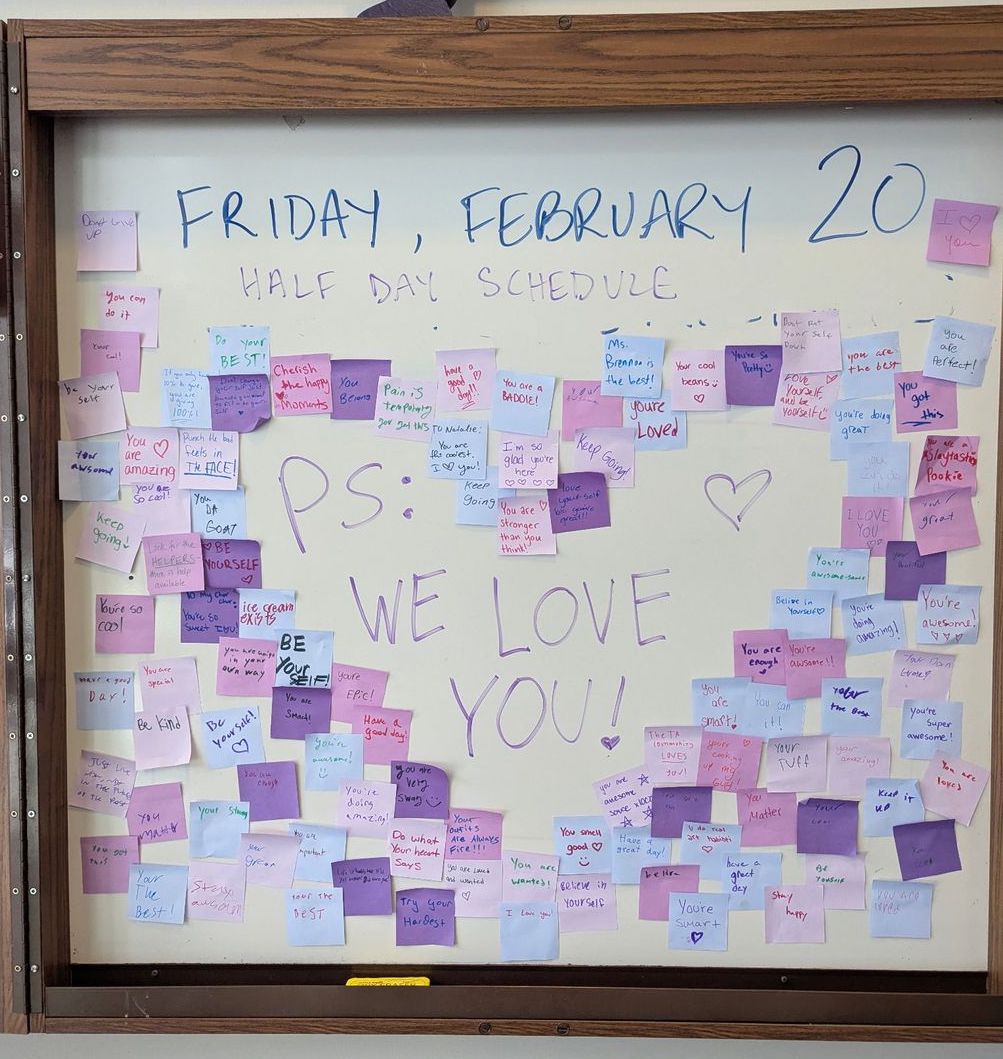 FRIDAY, FEBRUARY 20
HALF DAY SCHEDULE
Dont Give
UP
I ♡
You
You can
do it
Your
cool!
be your
self
Your
awsome
Do your
BEST!
Chelish
the happy
Moments
You
Belong
Pain is
temporary
you got this
have a
good
day!!
You are a
BADDIE!
Ms.
Brennan is
the best!
you're
Loved
Your cool
beans
You're so
Pretty
Dont Put
Your Self
Down
LOVE
YOURSELF,
and be
YOURSELF
you are
the best
you
are
Perfect!
you're doing
great
You
got
this
You
are
amazing
Punch the bad
feels in
THE FACE!
YOU ARE
SO COOL!
You
DA
GOAT
Keep
going!
Look for the
HELPERS
available
BE
YOURSELF
To Natalie:
You are
the coolest.
I ♡ you!
I'm so
glad you're
here
♡ ♡ ♡ ♡
Keep Going!
Keep
going
You are
Stronger
than you
think!
love
your-self
PS: ♡
WE LOVE
YOU!
Pookie
I LOVE
YOU
great
You're
awesome-sauce
Belive in
Yourself♡
you're
doing
amazing!
You're
awesome!
♡ ♡ ♡
You're so
cool
You're so
Sweet
ice cream
exists
you are unique
in your
own way
BE
YOUR
SELF!
You are
enough
You're
awsome!!
Have a good
DAY!
You are
special
Be kind
Be
yourself!
♡
You are
Smart!
you're
EPIC!
Have a
good day!
you're
awesome!
you
are
smart!
You can
it!
You're
super
awesome!
You are
enough
You're
doing
amazing!
you are
very
swag
you
matter
your Strong
Do what
Your heart
Says
Your
outfits
Are Always
Fire!!!
The TA
community
LOVES
you!
YOUR
TUFF
your
amazing!
Keep it
UP
You are
loved
you are
awesome
sauce
You
Matter
You got
this
Your
The
Best!
Stay
YOUR THE
BEST
Try Your
Hardest
you are loved
and wanted
♡
You are
Wanted!
I love you!
You smell
good ♡
Believe in
Yourself
Have a
great day!
You're
Smart
have a
great
day
Stay
happy
BE
YOURSELF
you are
loved